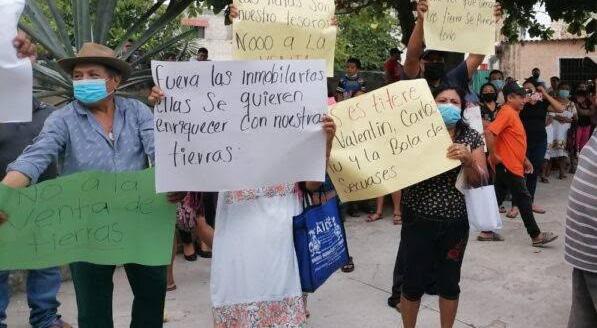 nuestro tesoros
NOOO a LA
la tierra
se ponen
todo
Fuera las inmobilartas
Ellas Se quieren
enriquecer con nuestras
tierras.
Es titere
Valentin, Carlo
y la Bola de
Secuases
No a la
Venta de
tierras